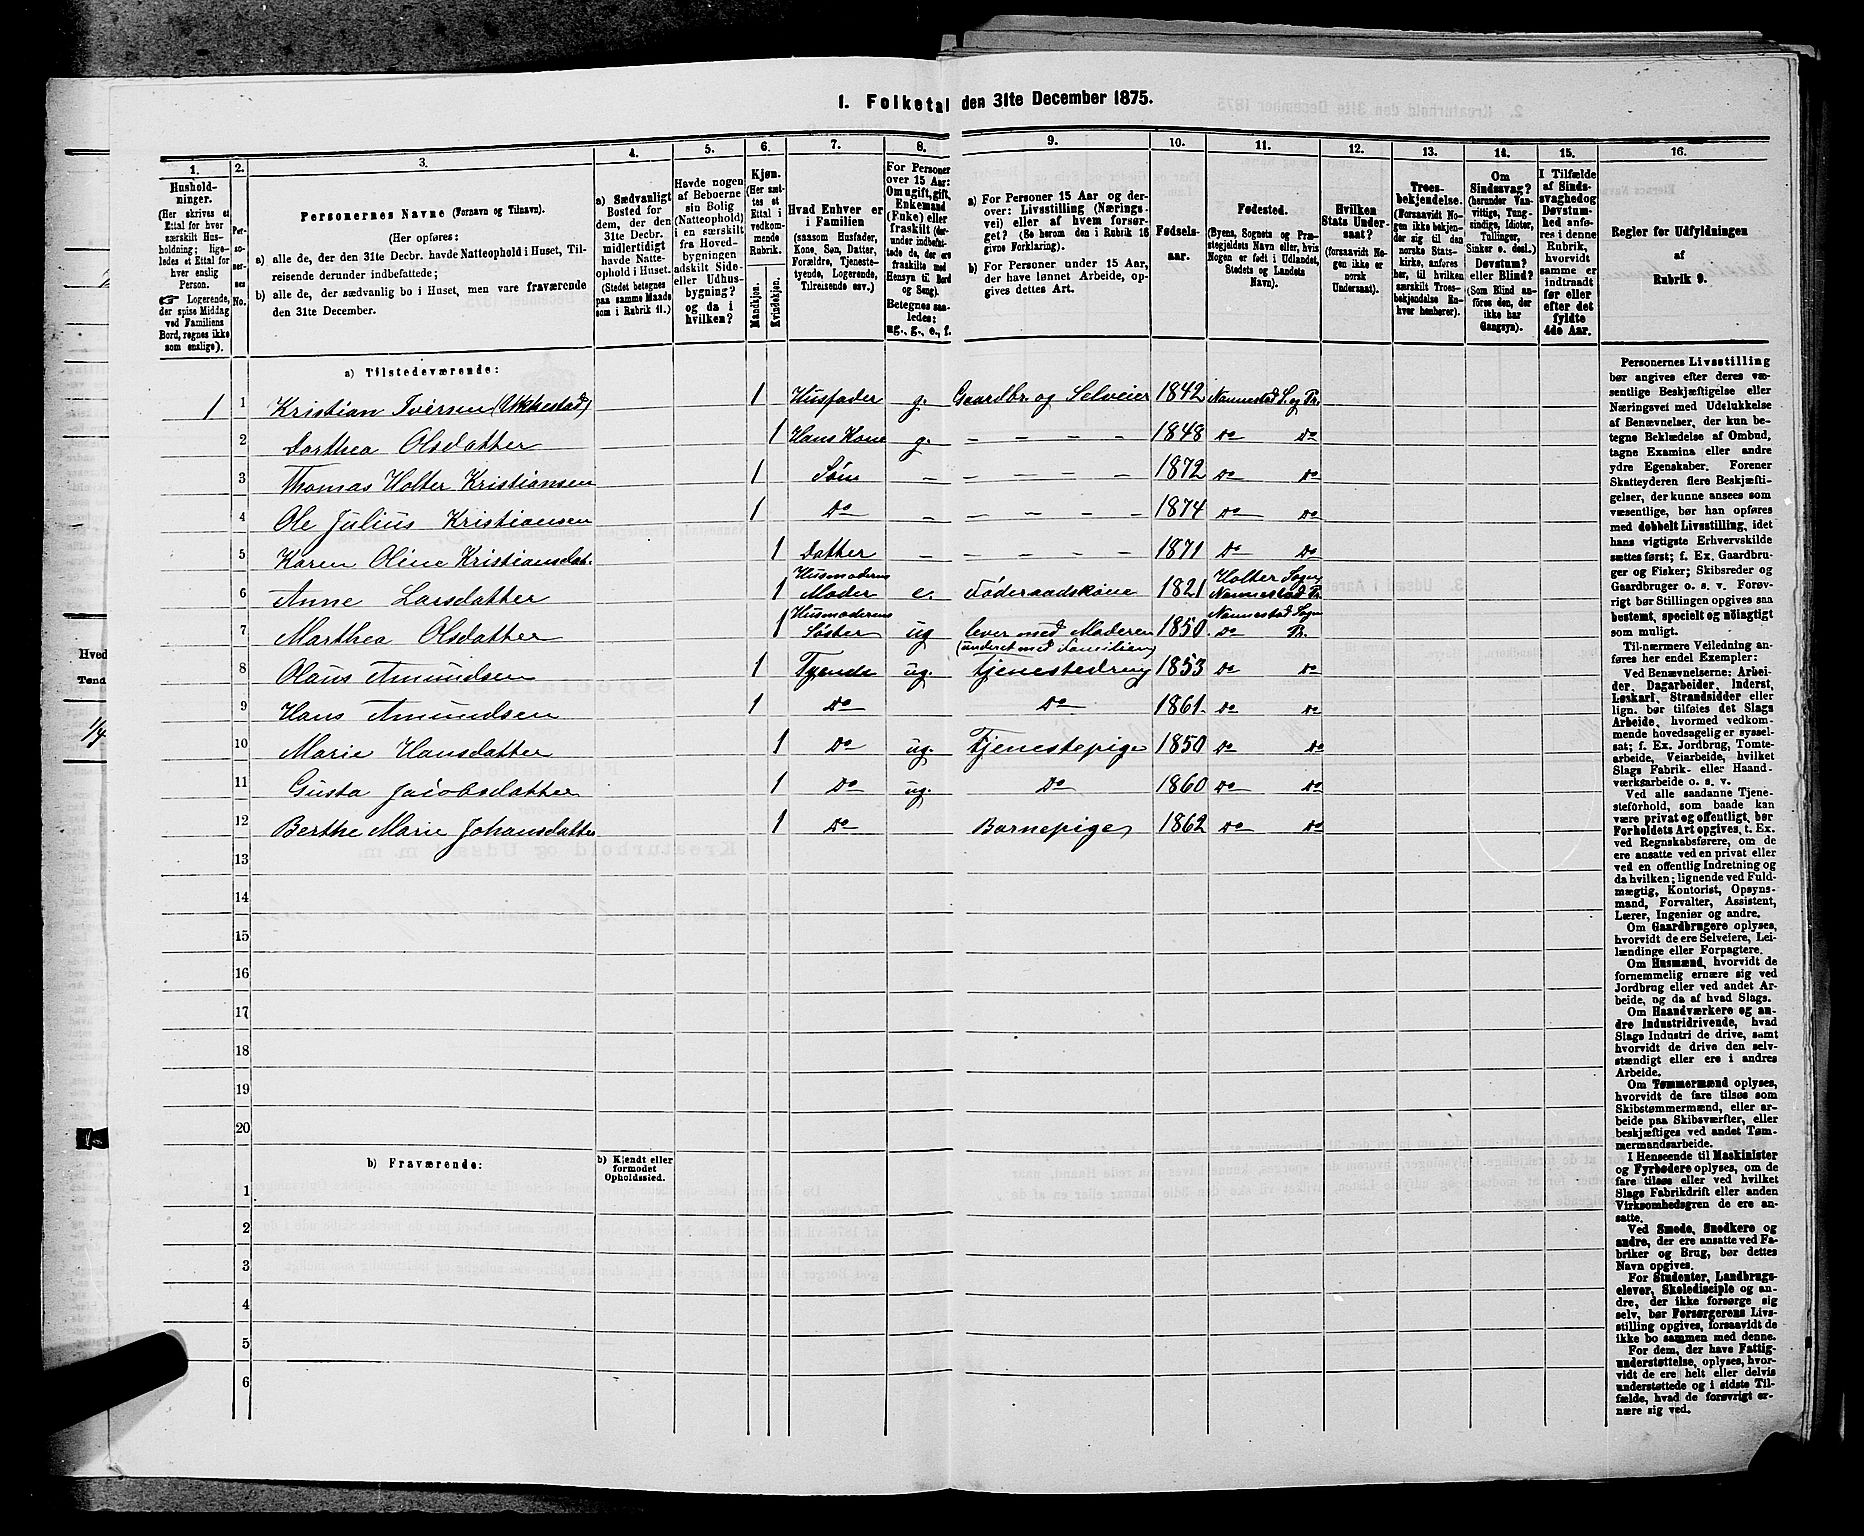 1. Folketal den 31te December 1875.
1.
Hushold-
ninger.
(Her skrives et
Ettal for hver
særskilt Hus-
holdning; lige-
ledes et Ettal for
hver enslig
Person.
☞ Logerende,
der spise Middag
ved Familiens
Bord, regnes ikke
som enslige).
2.
Per-
so-
ner-
nes
No.
3.
Personernes Navne (Fornavn og Tilnavn).
(Her opføres:
a) alle de, der den 31te Decbr. havde Natteophold i Huset, Til-
reisende derunder indbefattede;
b) alle de, der sædvanlig bo i Huset, men vare fraværende
den 31te December.
4.
a) Sædvanligt
Bosted for
dem, der den
31te Decbr.
midlertidigt
havde Natte-
ophold i Huset.
(Stedet betegnes
paa samme Maade
som i Rubrik 11.)
5.
Havde nogen
af Beboerne
sin Bolig
(Natteophold)
i en særskilt
fra Hoved-
bygningen
adskilt Side-
eller Udhus-
bygning?
og da i
hvilken?
6.
Kjøn.
(Her sæt-
tes et
Ettal i
vedkom-
mende
Rubrik.
Mandkjøn.
Kvindekjøn.
7.
Hvad Enhver er
i Familien
(saasom Husfader,
Kone, Søn, Datter,
Forældre, Tjeneste-
tyende, Logerende,
Tilreisende osv.)
8.
For Personer
over 15 Aar:
Om ugift, gift,
Enkemand
(Enke) eller
fraskilt (der-
under indbefat-
tede de, der ere
fraskilte med
Hensyn til Bord
og Seng).
Betegnes saa-
ledes:
ug., g., e., f.
9.
a) For Personer 15 Aar og der-
over: Livsstilling (Nærings-
vei) eller af hvem forsør-
get? (Se herom den i Rubrik 16
givne Forklaring).
b) For Personer under 15 Aar,
der have lønnet Arbeide, op-
gives dettes Art.
10.
Fødsels-
aar.
11.
Fødested.
(Byens, Sognets og Præ-
stegjeldets Navn eller, hvis
Nogen er født i Udlandet,
Stedets og Landets
Navn).
12.
Hvilken
Stats Under-
saat?
(forsaavidt No-
gen ikke er
norsk
Undersaat).
13.
Troes-
bekjendelse.
(Forsaavidt No-
gen ikke bekjen-
der sig til den
norske Stats-
kirke, anføres
her, til hvilken
særskilt Troes-
bekjendelse En-
hver henhører).
14.
Om
Sindssvag?
(herunder Van-
vittige, Tung-
sindige, Idioter,
Tullinger,
Sinker o. desl.)
Døvstum?
eller Blind?
(Som Blind an-
føres den, der
ikke har
Gangsyn).
15.
I Tilfælde
af Sinds-
svaghed og
Døvstum-
hed anfø-
res i denne
Rubrik,
hvorvidt
samme er
indtraadt
før eller
efter det
fyldte
4de Aar.
16.
Regler for Udfyldningen
af
Rubrik 9.
a) Tilstedeværende:
1 1 Kristian Iversen (Ukkestad) 1 Husfader g. Gaardbr. og Selveier 1842 Nannestad S. og Pr.
2 Dorthea Olsdatter 1 Hans Kone g. – – – – 1848 do do
3 Thomas Holter Kristiansen 1 Søn – – – – – 1872 do do
4 Ole Julius Kristiansen 1 do – – – – – 1874 do do
5 Karen Oline Kristiansdat. 1 Datter – – – – – 1871 do do
6 Anne Larsdatter 1 Husmoderens Moder e. Føderaadskone 1821 Holter Sogn Nannestad Pr.
7 Marthea Olsdatter 1 Husmoderens Søster ug lever med Moderen 1850 Nannestad Sogn do Pr.
(underet med Familien)
8 Olaus Amundsen 1 Tyende ug. Tjenestedreng 1853 do do
9 Hans Amundsen 1 do do 1861 do do
10 Marie Hansdatter 1 do ug. Tjenestepige 1850 do do
11 Gusta Jacobsdatter 1 do ug. do 1860 do do
12 Berthe Marie Johansdatter 1 do Barnepige 1862 do do
13
14
15
16
17
18
19
20
b) Fraværende:
b) Kjendt eller
formodet
Opholdssted.
1
2
3
4
5
6
Personernes Livsstilling
bør angives efter deres væ-
sentlige Beskjæftigelse eller
Næringsvei med Udelukkelse
af Benævnelser, der kun be-
tegne Beklædelse af Ombud,
tagne Examina eller andre
ydre Egenskaber. Forener
Skatteyderen flere Beskjæfti-
gelser, der kunne ansees som
væsentlige, bør han opføres
med dobbelt Livsstilling, idet
hans vigtigste Erhvervskilde
sættes først; f. Ex. Gaardbru-
ger og Fisker; Skibsreder og
Gaardbruger o. s. v. Forøv-
rigt bør Stillingen opgives saa
bestemt, specielt og nøiagtigt
som muligt.
Til nærmere Veiledning an-
føres her endel Exempler:
Ved Benævnelserne: Arbei-
der, Dagarbeider, Inderst,
Løskarl, Strandsidder eller
lign. bør tilføies det Slags
Arbeide, hvormed vedkom-
mende hovedsagelig er syssel-
sat; f. Ex. Jordbrug, Tomte-
arbeide, Veiarbeide, hvilket
Slags Fabrik- eller Haand-
værksarbeide o. s. v.
Ved alle saadanne Tjene-
steforhold, som baade kan
være privat og offentligt, bør
Forholdets Art opgives, t. Ex.
ved Regnskabsførere, om de
ere ansatte ved en privat eller
ved en offentlig Indretning og
da hvilken; lignende ved Fuld-
mægtig, Kontorist, Opsyns-
mand, Forvalter, Assistent,
Lærer, Ingeniør og andre.
Om Gaardbrugere oplyses,
hvorvidt de ere Selveiere, Lei-
lændinge eller Forpagtere.
Om Husmænd, hvorvidt de
fornemmelig ernære sig ved
Jordbrug eller ved andet Ar-
beide, og da af hvad Slags.
Om Haandværkere og an-
dre Industridrivende, hvad
Slags Industri de drive, samt
hvorvidt de drive den selv-
stændigt eller ere i andres
Arbeide.
Om Tømmermænd oplyses,
hvorvidt de fare tilsøs som
Skibstømmermænd, eller ar-
beide paa Skibsværfter, eller
beskjæftiges ved andet Tøm-
mermandsarbeide.
I Henseende til Maskinister
og Fyrbødere oplyses, om de
fare tilsøs eller ved hvilket
Slags Fabrikdrift eller anden
Virksomhedsgren de ere an-
satte.
Ved Smede, Snedkere og
andre, der ere ansatte ved Fa-
briker og Brug, bør dettes
Navn opgives.
For Studenter, Landbrugs-
elever, Skoledisciple og an-
dre, der ikke forsørge sig
selv, bør Forsørgerens Livs-
stilling opgives, forsaavidt de
ikke bo sammen med denne.
For dem, der have Fattig-
understøttelse, oplyses, hvor-
vidt de ere helt eller delvis
understøttede og i sidste Til-
fælde, hvad de forøvrigt er-
nære sig ved.